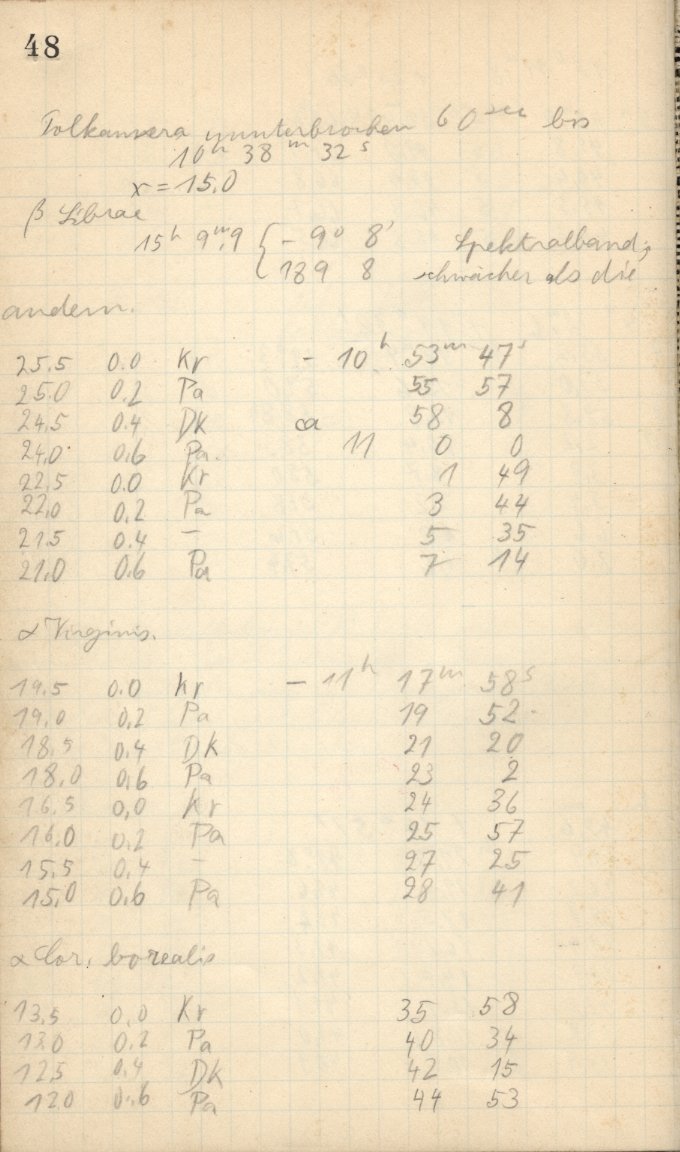 48
ununterbrochen 60 sec bis
10h 38m 32s
x = 15.0
β Librae
15h 9m.9 { - 9° 8' Spektralband,
189 8 schwächer als die
andern.
25.5 0.0 Kr - 10h 53m 47s
25.0 0.2 Pa 55 57
24.5 0.4 DK ca 58 8
24.0 0.6 Pa. 11 0 0
22.5 0.0 Kr 1 49
22.0 0.2 Pa 3 44
21.5 0.4 — 5 35
21.0 0.6 Pa 7 14
α Virginis.
19.5 0.0 Kr — 11h 17m 58s
19.0 0.2 Pa 19 52
18.5 0.4 DK 21 20
18.0 0.6 Pa 23 2
16.5 0,0 Kr 24 36
16.0 0.2 Pa 25 57
15.5 0.4 — 27 25
15.0 0.6 Pa 28 41
α Cor. borealis
13.5 0.0 Kr 35 58
13.0 0.2 Pa 40 34
12.5 0.4 DK 42 15
12.0 0.6 Pa 44 53